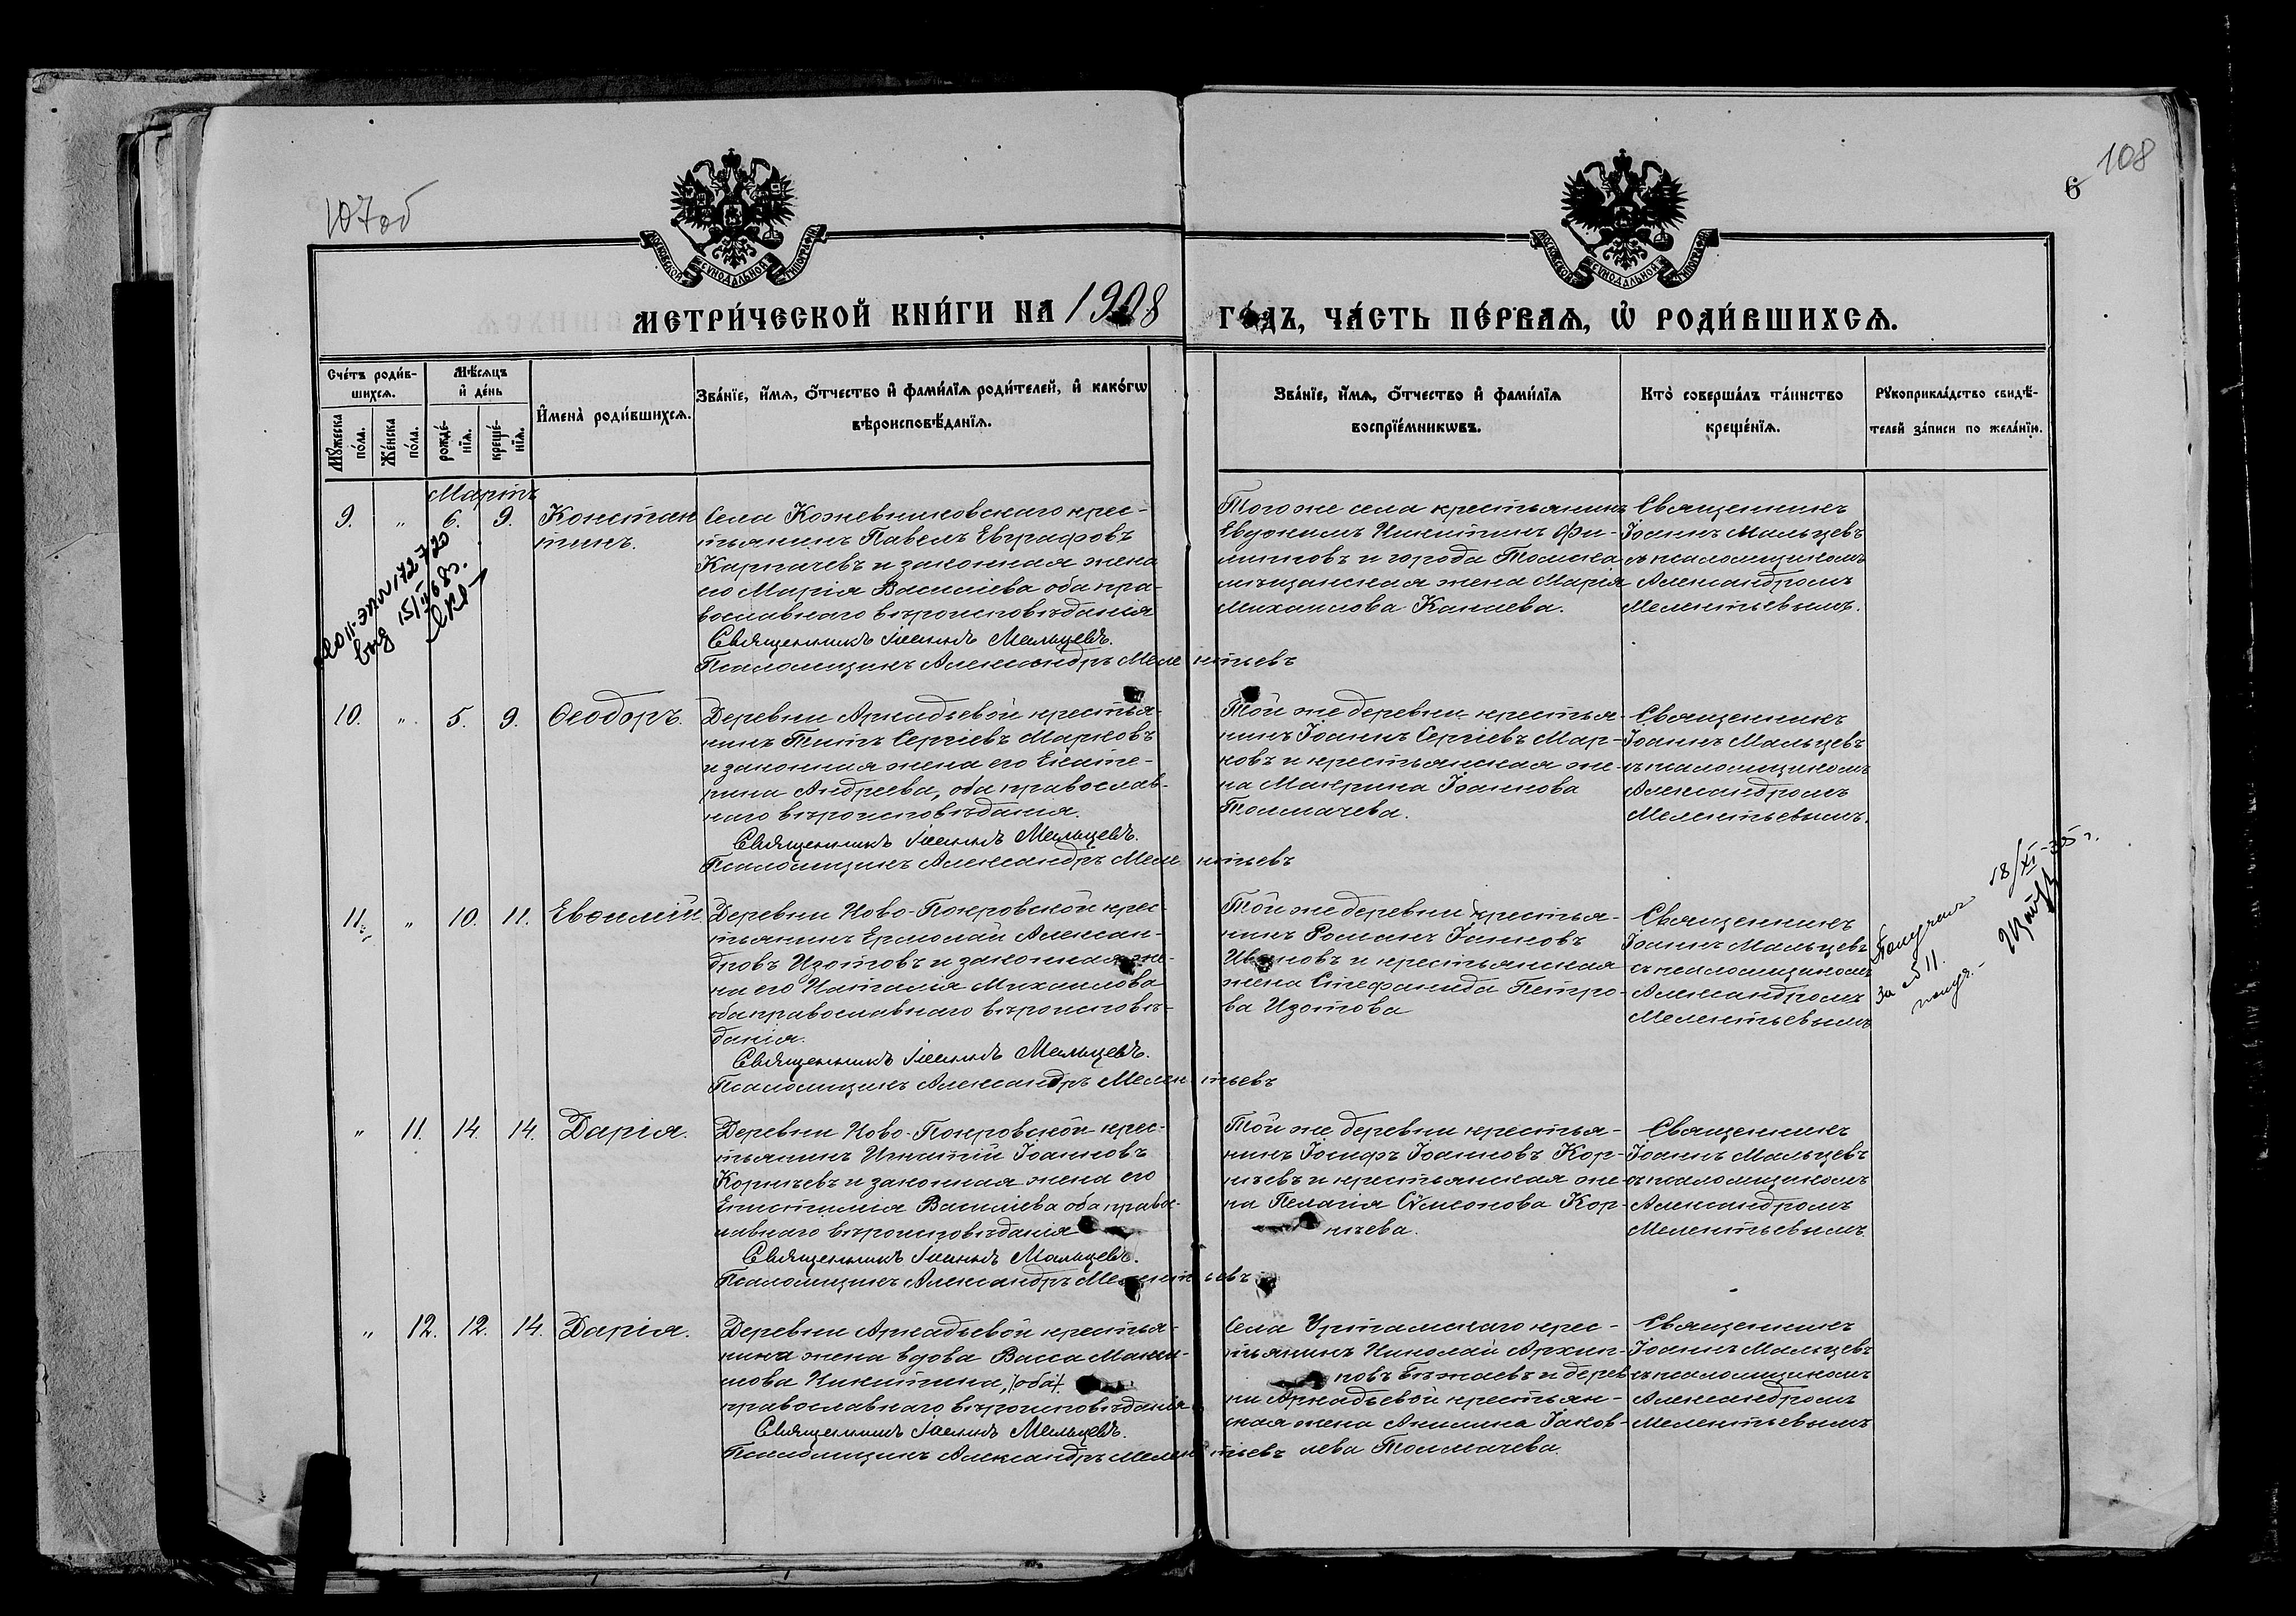 107об
108
6
МОСКОВСКОЙ СѴНОДАЛЬНОЙ ТИПОГРАФІИ
МОСКОВСКОЙ СѴНОДАЛЬНОЙ ТИПОГРАФІИ
МЕТРИ́ЧЕСКОЙ КНИ́ГИ НА 1908 ГО́ДЪ, ЧА́СТЬ ПЕ́РВАѦ, Ѡ҆ РОДИ́ВШИХСѦ.
Сче́тъ роди́в-
шихсѧ.
Мꙋжеска по́ла.
Же́нска по́ла.
Мѣ́сѧцъ
и҆ де́нь
рожде́-
нїѧ.
креще́-
нїѧ.
И҆мена̀ роди́вшихсѧ.
Зва́нїе, и҆́мѧ, ѻ҆́тчество и҆ фами́лїѧ роди́телей, и҆ како́гѡ
вѣроисповѣ́данїѧ.
Зва́нїе, и҆́мѧ, ѻ҆́тчество и҆ фами́лїѧ
воспрїе́мникѡвъ.
Кто̀ соверша́лъ та́инство
креще́нїѧ.
Рꙋкоприкла́дство свидѣ́-
телей за́писи по жела́нїю.
Мартъ
9. " 6. 9. Констан
тинъ.
Села Кожевниковскаго крес-
тьянинъ Павелъ Евграфовъ
Карпачевъ и законная жена
его Марія Василіева оба пра-
вославнаго вѣроисповѣданія
Священникъ Іоаннъ Мальцевъ.
Псаломщикъ Александръ Мелентьевъ
Того же села крестьянинъ
Евдокимъ Никитинъ Фи-
липповъ и города Томска
мѣщанская жена Марія
Михаилова Канаева.
Священникъ
Іоаннъ Мальцевъ
съ псаломщикомъ
Александромъ
Мелентьевымъ.
10. " 5. 9. Ѳеодоръ.
Деревни Аркадьевой крестья-
нинъ Титъ Сергіевъ Марковъ
и законная жена его Екате-
рина Андреева, оба православ-
наго вѣроисповѣданія.
Священникъ Іоаннъ Мальцевъ.
Псаломщикъ Александръ Мелентьевъ
Той же деревни крестья-
нинъ Іоаннъ Сергіевъ Мар-
ковъ и крестьянская же-
на Макрина Іоаннова
Толмачева.
Священникъ
Іоаннъ Мальцевъ
съ псаломщикомъ
Александромъ
Мелентьевымъ.
11. " 10. 11. Евѳимій.
Деревни Ново-Покровской крес-
тьянинъ Ермолай Алексан-
дровъ Изотовъ и законная же-
на его Наталія Михаилова
оба православнаго вѣроисповѣ-
данія.
Священникъ Іоаннъ Мальцевъ.
Псаломщикъ Александръ Мелентьевъ
Той же деревни крестья-
нинъ Романъ Іоанновъ
Ивановъ и крестьянская
жена Стефанида Петро-
ва Изотова
Священникъ
Іоаннъ Мальцевъ
съ псаломщикомъ
Александромъ
Мелентьевымъ
Получен
18/XI-35 г.
За №11.
" 11. 14. 14. Дарія.
Деревни Ново-Покровской крес-
тьянинъ Игнатій Іоанновъ
Корнѣевъ и законная жена его
Епистимія Василіева оба правос-
лавнаго вѣроисповѣданія
Священникъ Іоаннъ Мальцевъ.
Псаломщикъ Александръ Мелентьевъ
Той же деревни крестья-
нинъ Іосифъ Іоанновъ Кор-
нѣевъ и крестьянская же-
на Пелагія Сѵмеонова Кор-
нѣева.
Священникъ
Іоаннъ Мальцевъ
съ псаломщикомъ
Александромъ
Мелентьевымъ.
" 12. 12. 14. Дарія.
Деревни Аркадьевой крестья-
нина жена вдова Васса Маки-
мова Никитина, /оба/
православнаго вѣроисповѣданія
Священникъ Іоаннъ Мальцевъ.
Псаломщикъ Александръ Мелентьевъ
Села Уртамскаго крес-
тьянинъ Николай Архип-
повъ Бѣжаевъ и дерев-
ни Аркадьевой крестьян-
ская жена Акилина Іаков-
лева Толмачева.
Священникъ
Іоаннъ Мальцевъ
съ псаломщикомъ
Александромъ
Мелентьевымъ